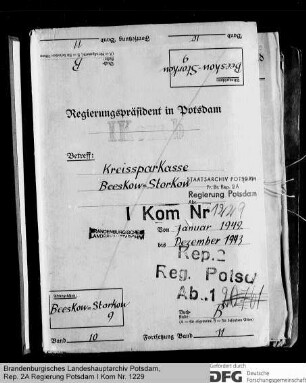 11 Fortsetzung Band
10 Band
B
Beeskow-Storkow
9
Regierungspräsident in Potsdam
Betreff:
Kreissparkasse
Beeskow-Storkow
STAATSARCHIV POTSDAM
Pr. Br. Rep. 2A
Regierung Potsdam
I Kom Nr 1229
Von Januar 1942
bis Dezember 1943
BRANDENBURGISCHES
LANDESHAUPTARCHIV
Rep. 2
Reg. Potsd
Beeskow-Storkow
9
B
Band 10
Fortsetzung Band 11
Brandenburgisches Landeshauptarchiv Potsdam,
Rep. 2A Regierung Potsdam I Kom Nr. 1229
Gefördert durch
DFG Deutsche
Forschungsgemeinschaft